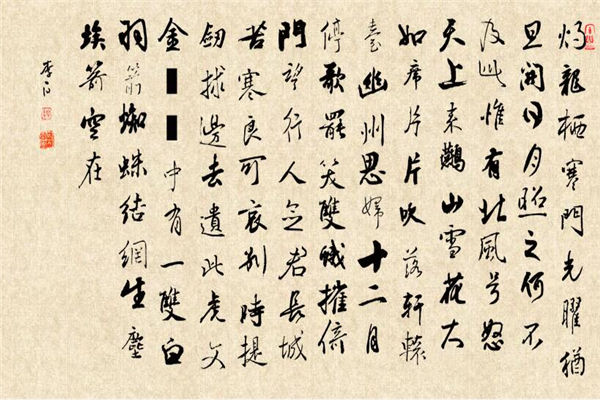 灼龍栖寒門光曜猶
旦開日月照之何不
及此惟有北風号怒
天上来鷰山雪花大
如席片片吹落軒轅
臺幽州思婦十二月
停歌罷笑雙蛾摧倚
門望行人念君長城
苦寒良可哀别時提
劒救邊去遺此虎文
金▮▮中有一雙白
羽箭蜘蛛结網生塵
埃箭空在
李白